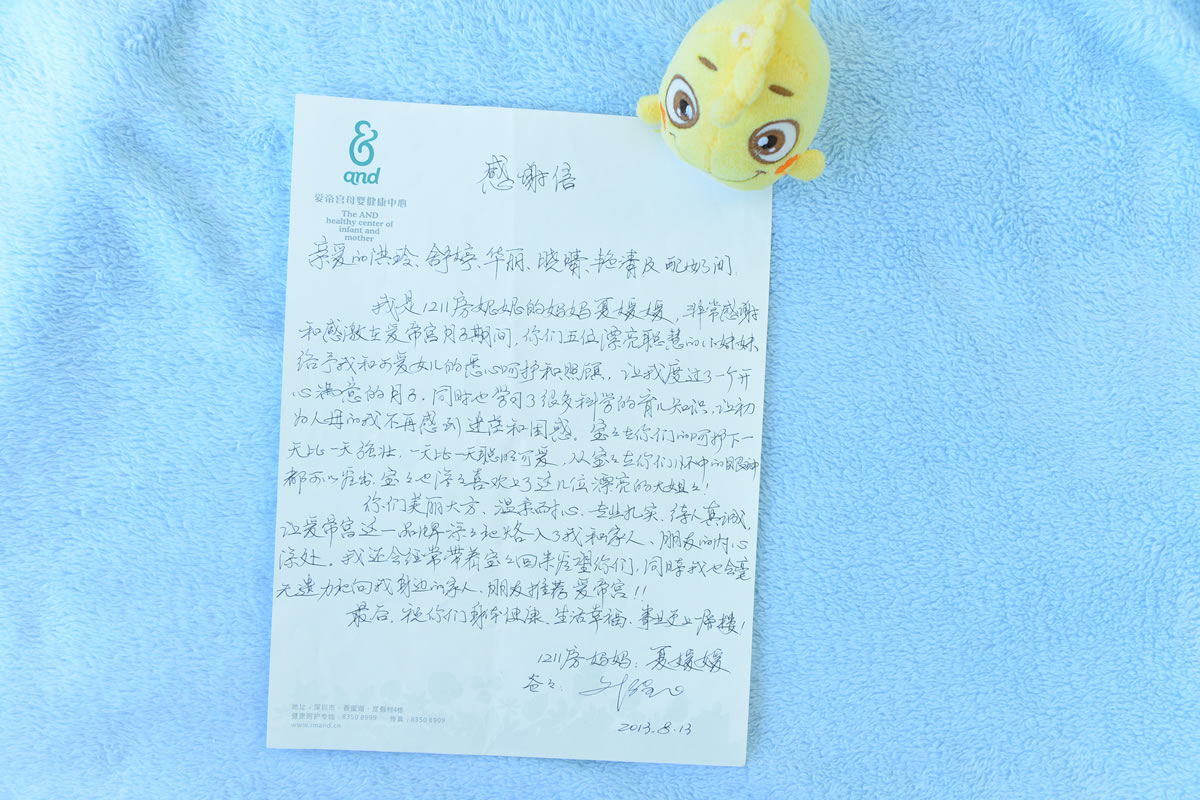 and
感谢信
爱帝宫母婴健康中心
The AND
healthy center of
infant and
mother
亲爱的洪玲、舒婷、华丽、晓晴、艳清及配奶间.
我是1211房妮妮的妈妈夏媛媛,非常感谢
和感激在爱帝宫月子期间,你们五位漂亮聪慧的小妹妹
给予我和可爱女儿的悉心呵护和照顾,让我度过了一个开
心满意的月子,同时也学习了很多科学的育儿知识,让初
为人母的我不再感到迷茫和困惑。宝宝在你们的呵护下一
天比一天强壮,一天比一天聪明可爱,从宝宝在你们怀中的眼神
都可以看出,宝宝也深深喜欢上了这几位漂亮的大姐姐!
你们美丽大方、温柔耐心、专业扎实、待人真诚,
让爱帝宫这一品牌深深地烙入了我和家人、朋友的内心
深处。我还会经常带着宝宝回来看望你们,同时我也会毫
无遗力地向我身边的家人、朋友推荐爱帝宫!!
最后,祝你们身体健康、生活幸福、事业更上一层楼!
1211房妈妈:夏媛媛
爸爸:
2013.8.13
地址:深圳市·香蜜湖·度假村4栋
健康呵护专线:8350 8999 传真:8350 8909
www.imand.cn